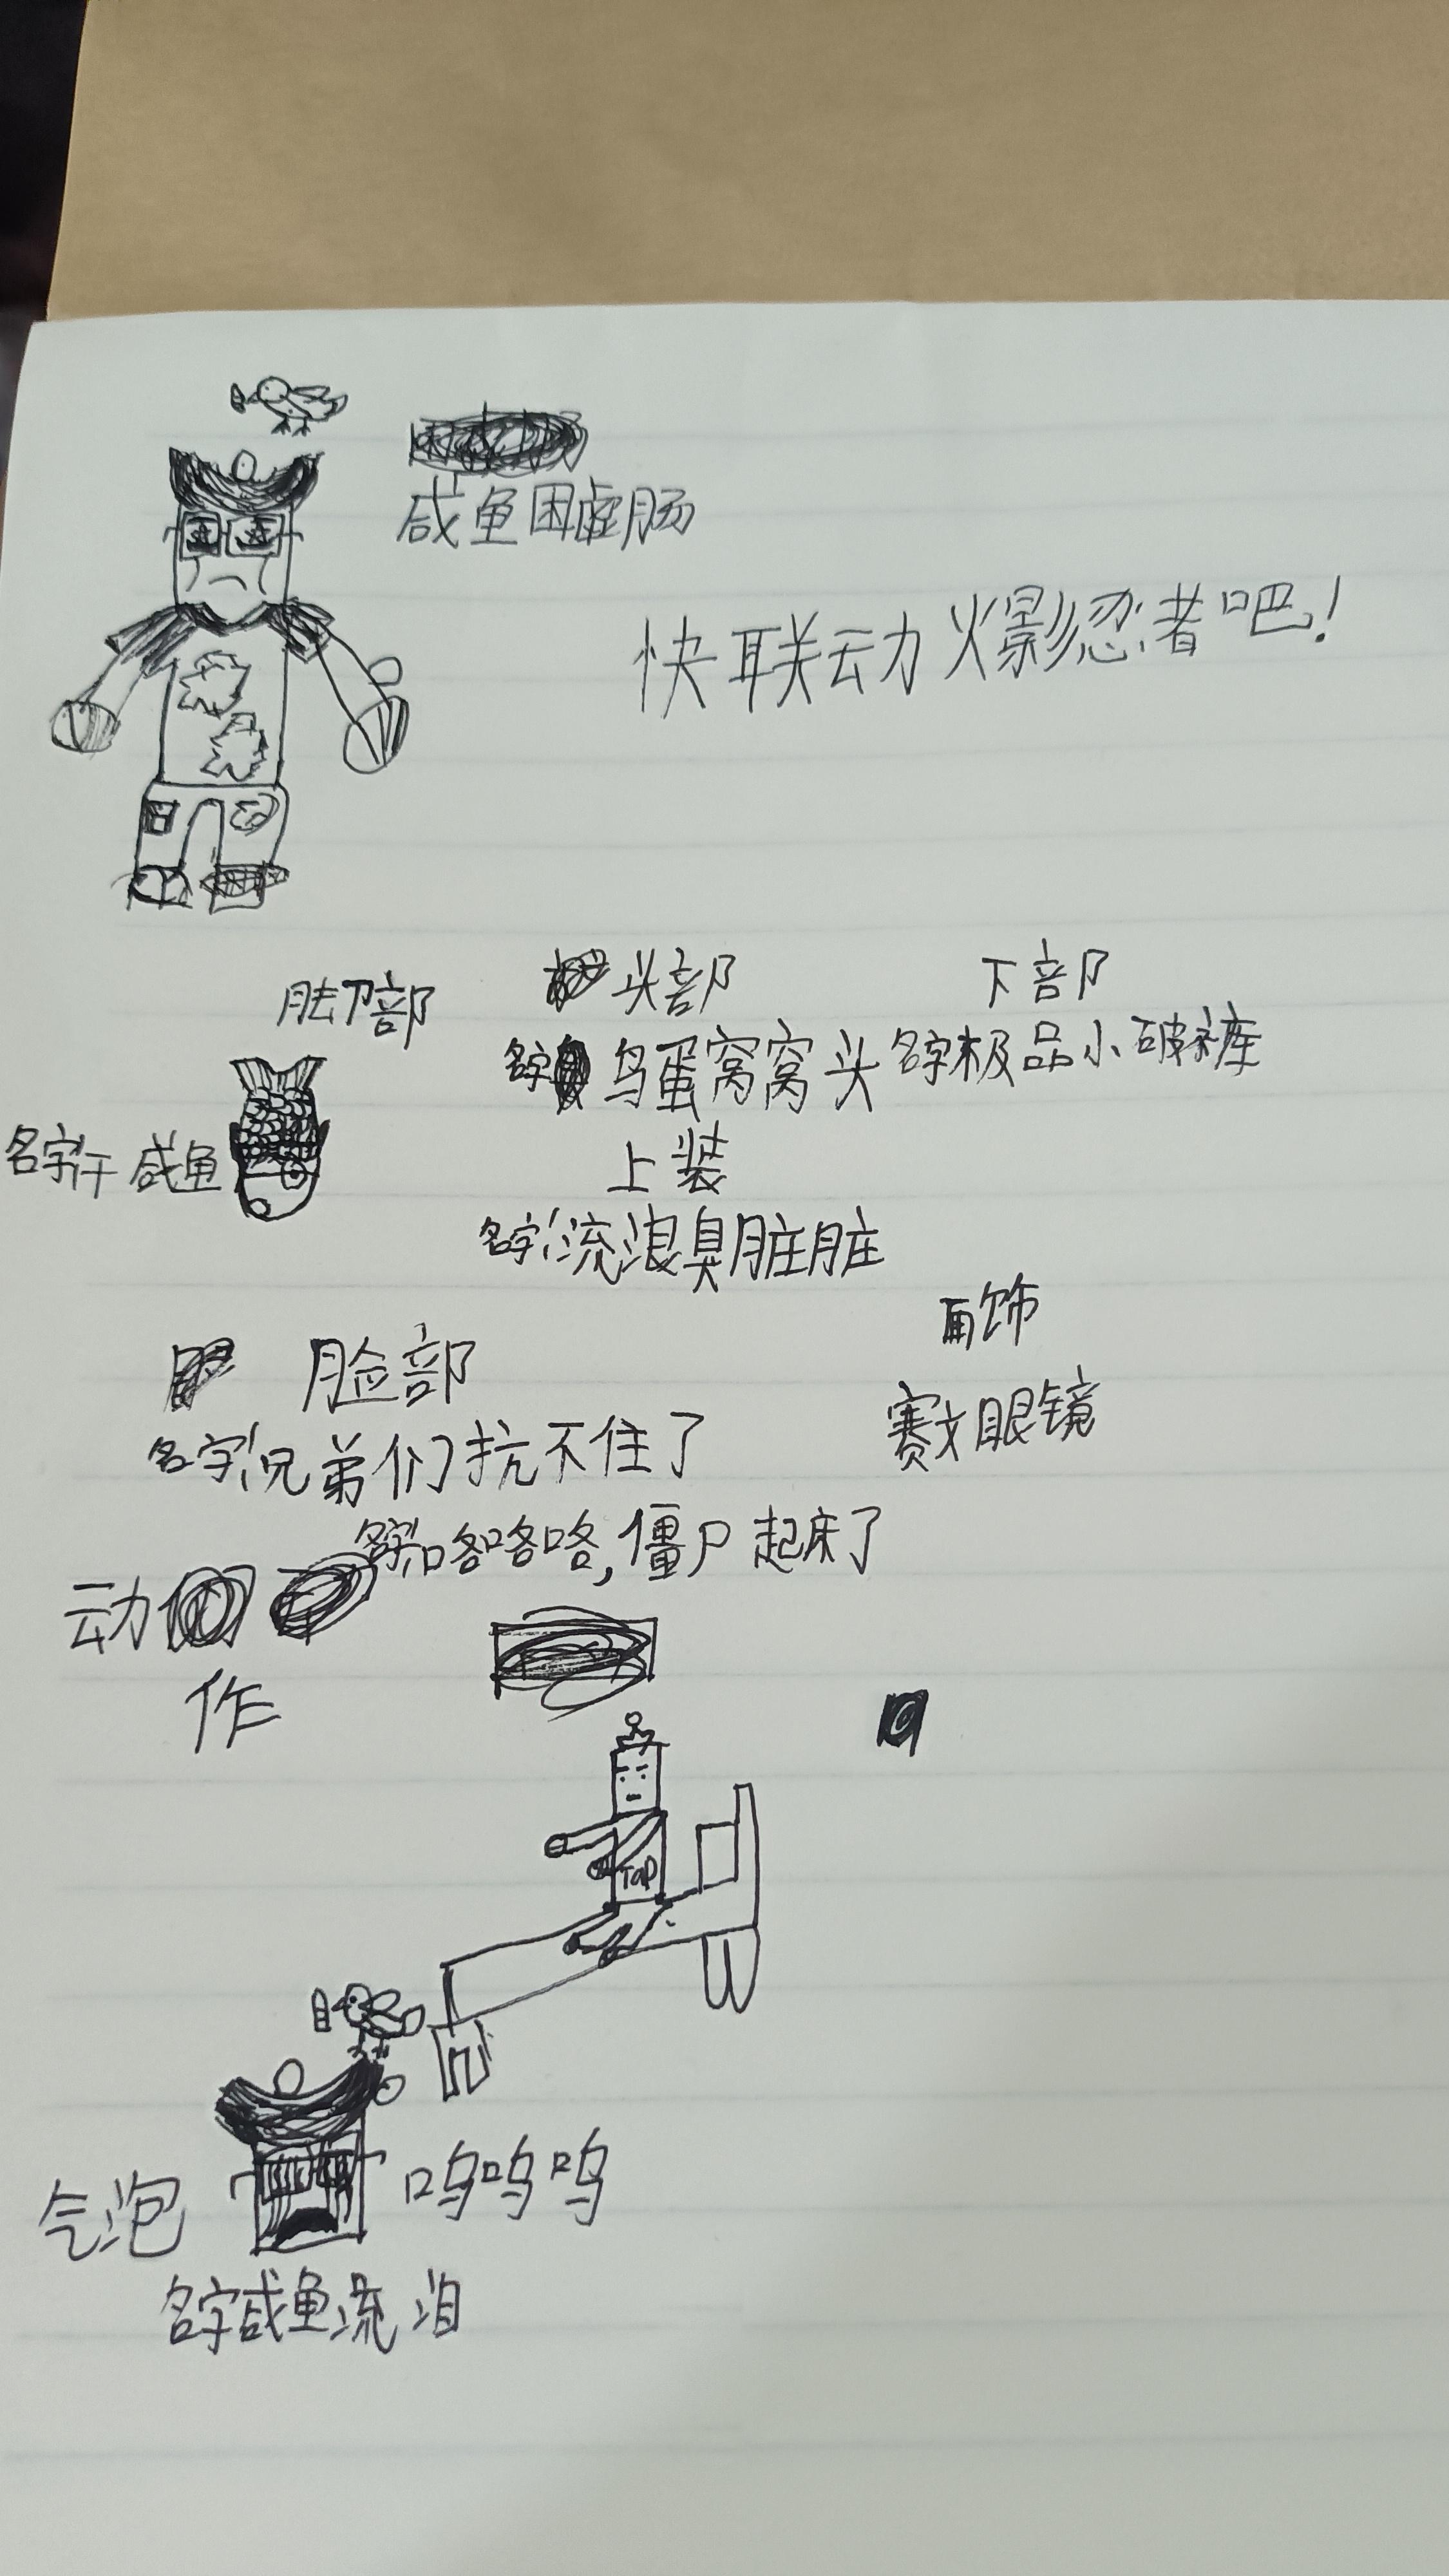 咸鱼困虚肠
快联动火影忍者吧!
脚部
头部
下部
名字 鸟蛋窝窝头
名字极品小破裤
名字 咸鱼
上装
名字流浪臭脏脏
面饰
赛文眼镜
脸部
名字兄弟们抗不住了
名字咯咯咯,僵尸起床了
动
作
TOP
气泡
呜呜呜
名字咸鱼流泪